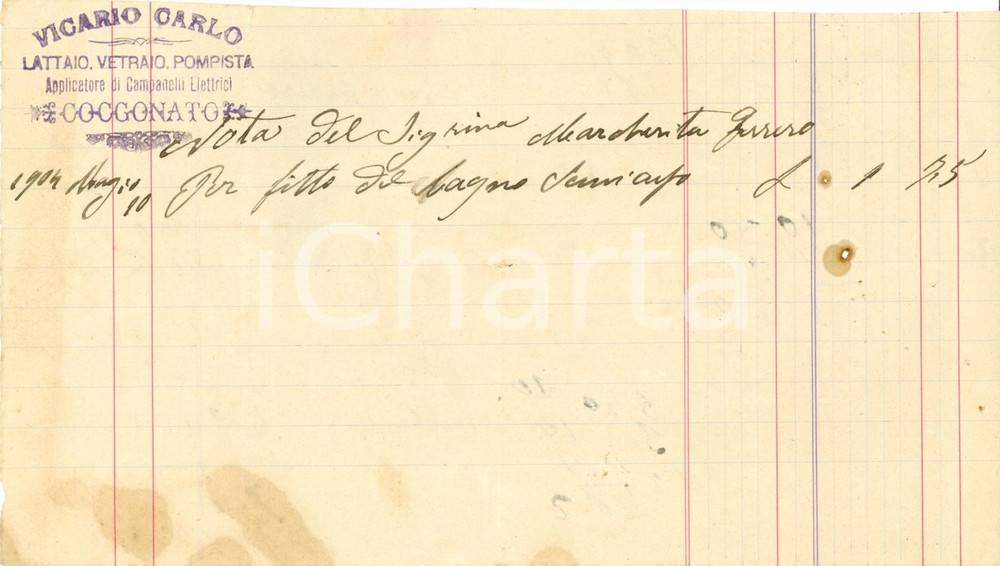 VICARIO CARLO
LATTAIO, VETRAIO, POMPISTA
Applicatore di Campanelli Elettrici
COCCONATO
Nota del Sigrina Margherita
1904 Maggio 10 Per fitto del bagno L 1 75
iCharta